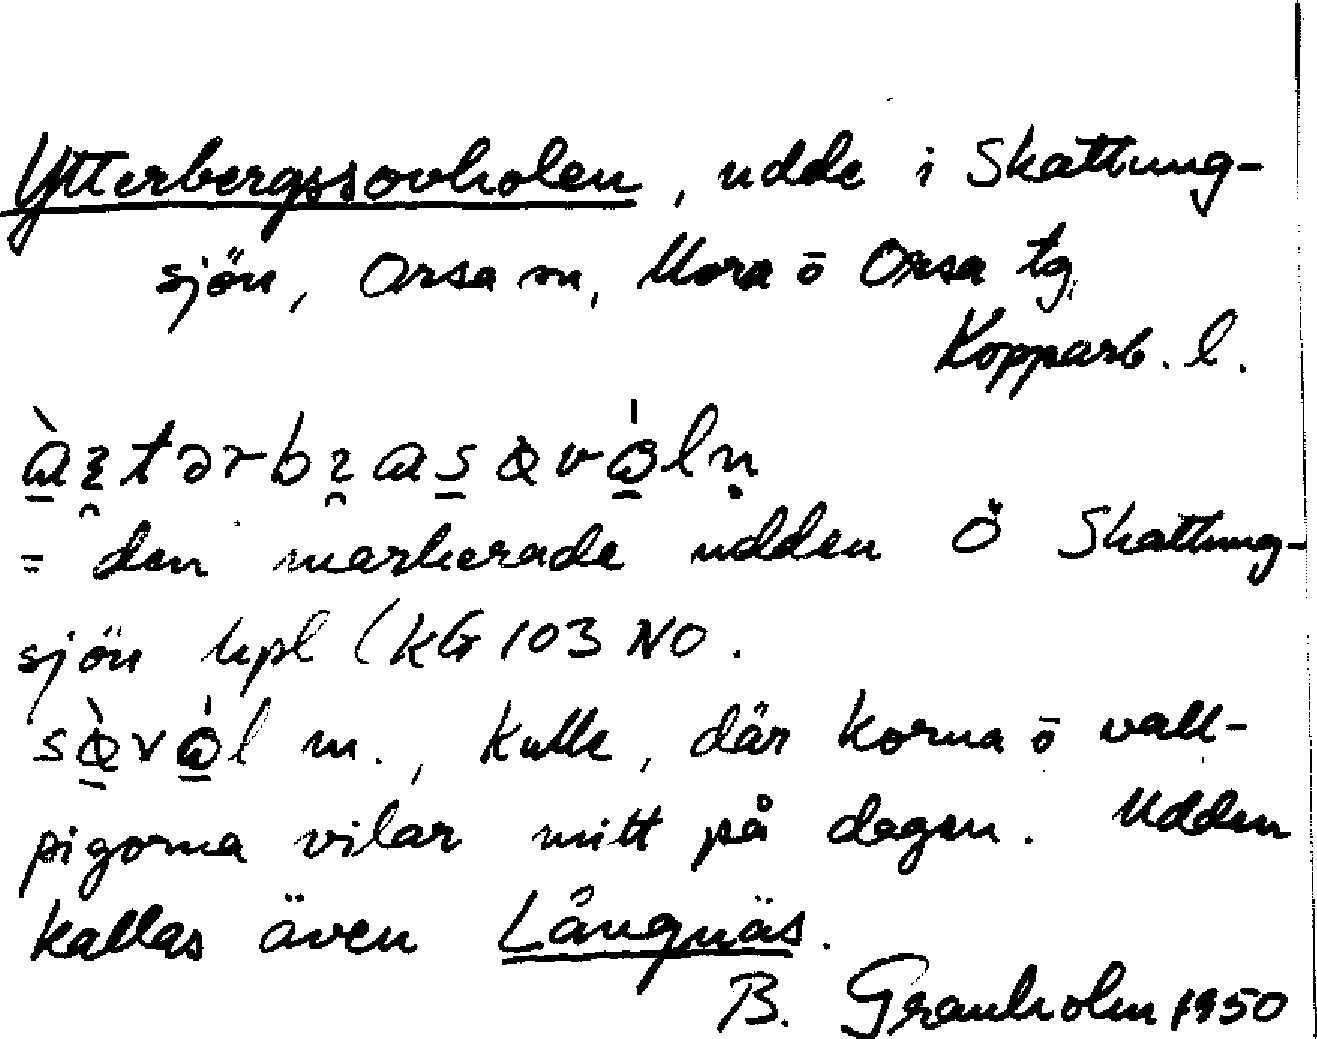 Ytterbergssovholen, udde i Skattung-
sjön, Orsa sn, Mora ō Orsa tg,
Kopparb. l.
= den markerade udden Ö Skattung-
sjön hpl (KG 103 NO.
m., kulle, där korna ō vall-
pigorna vilar mitt på dagen. Udden
kallas även Långnäs.
B. Granholm 1950